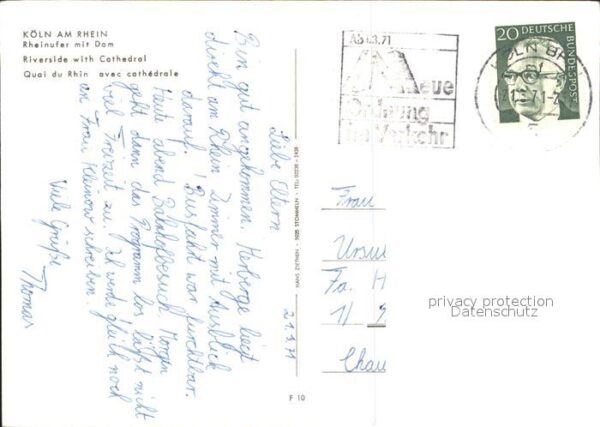 KÖLN AM RHEIN
Rheinufer mit Dom
Riverside with Cathedral
Quai du Rhin avec cathédrale
Liebe Eltern
Bin gut angekommen. Herberge liegt
direkt am Rhein. Zimmer mit Ausblick
darauf. Busfahrt war furchtbar.
Heute abend Bahnhofbesuch. Morgen
geht dann das Programm los, läßt nicht
viel Freizeit zu. Ich werde gleich noch
an Frau Kleinow schreiben.
Viele Grüße
Thomas
HANS ZIETHEN · 5025 STOMMELN · TEL. 02238-2438
F 10
AB 1.3.71
neue
Ordnung
im Verkehr
20
DEUTSCHE
BUNDESPOST
KÖLN
Frau
Ursu
Fa. H
1/
Chau
privacy protection
Datenschutz